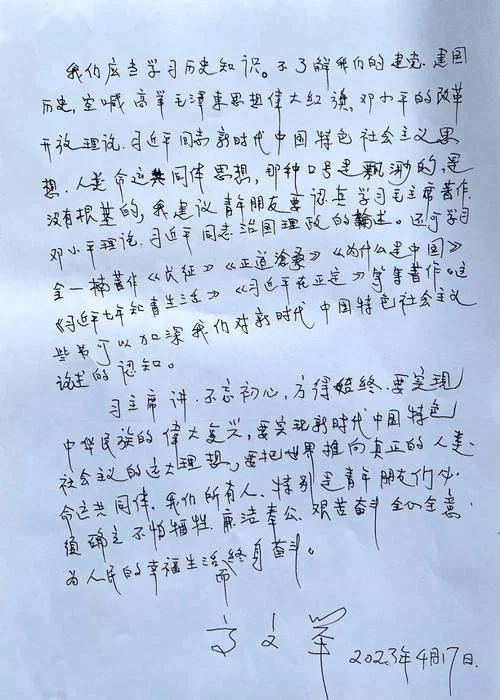 我们应当学习历史知识。不了解我们的建党.建国
历史,空喊高举毛泽東思想伟大红旗,邓小平的改革
开放理论.习近平同志新时代中国特色社会主义思
想.人类命运共同体思想,那种口号是飘渺的,是
没有根基的,我建议青年朋友要认真学习毛主席著作.
邓小平理论.习近平同志治国理政的论述。还可学习
金一楠著作《长征》《正道滄桑》《为什么是中国》
《习近平七年知青生活》《习近平在正定》等等著作。这
些书可以加深我们对新时代中国特色社会主义
论述的认知。
习主席讲.不忘初心,方得始终.要实现
中华民族的伟大复兴,要实现新时代中国特色
社会主义的远大理想,要把世界推向真正的人类
命运共同体.我们所有人.特别是青年朋友们必
须确立不怕牺牲.廉洁奉公.艰苦奋斗全心全意
为人民的幸福生活而终身奋斗。
2023年4月17日.